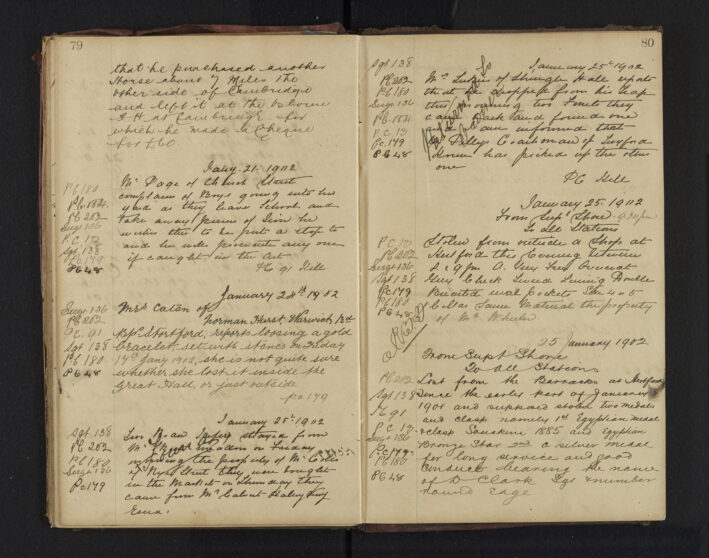 79
that he purchased another
Horse about 7 Miles the
other side of Cambridge
and left it at the
I H at Cambridge for
which he made a Cheque
for £60.
Jany. 21. 1902
PC 180
Mr Page of Church Street
complains of Boys going into his
yard as they leave School and
take away pieces of Iron he
wishes this to be put a stop to
and he will prosecute any one
if caught in the act
PC 91 Hill
PC 202
Sergt 136
P.C. 17
Sgt 138
PC 179
PC 48
January 24th 1902
Mrs Caton of
Norman Hurst, Warwick Rd
Bps Stortford, reports losing a gold
bracelet, set with stones on Friday
17th Jany 1902, she is not quite sure
whether she lost it inside the
Great Hall, or just outside
PC. 179
Sergt 136
PC 202
PC. 91
Sgt 138
PC 180
PC 48
January 25th 1902
strayed from
on Friday
morning the property of Mr
Street they were bought
in the Market on Thursday they
came from Mr
Essex.
Sgt 138
PC 202
PC 180
Sergt 136
PC 179
80
January 25th 1902
Mr of Shingle Hall reports
that he dropped from his trap
this morning two
came back and found one
and is informed that
Mr Coachman of
has picked up the other
one
PC Hill
Sgt 138
PC 202
PC 180
Sergt 136
P.C. 17
PC. 179
PC 48
January 25. 1902
From Supt Shore
To all Stations
Stolen from outside a Shop at
Hertford this Evening between
2 & 9 pm A Grey Overcoat
Grey Check Lining Double
Breasted
Collar Same Material the property
of Mr
PC 17
PC 202
Sergt 136
Sgt 138
PC 179
PC 180
PC 48
25 January 1902
From Supt Shore
To all Stations
Lost from the Barracks at Hertford
since the early part of January
1901 and supposed stolen two medals
and clasp namely 1st Egyptian medal
clasp Suakin 1885 and Egyptian
Bronze Star and a silver medal
for long service and good
conduct bearing the name
of D Clark Sgt & number
round Edge
PC 202
Sgt 138
PC 91
P.C 17
Sergt 136
PC 179
PC 180
PC 48